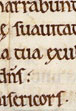 narrabunt
suauitat
a tua exul
dn̄s:
isericors